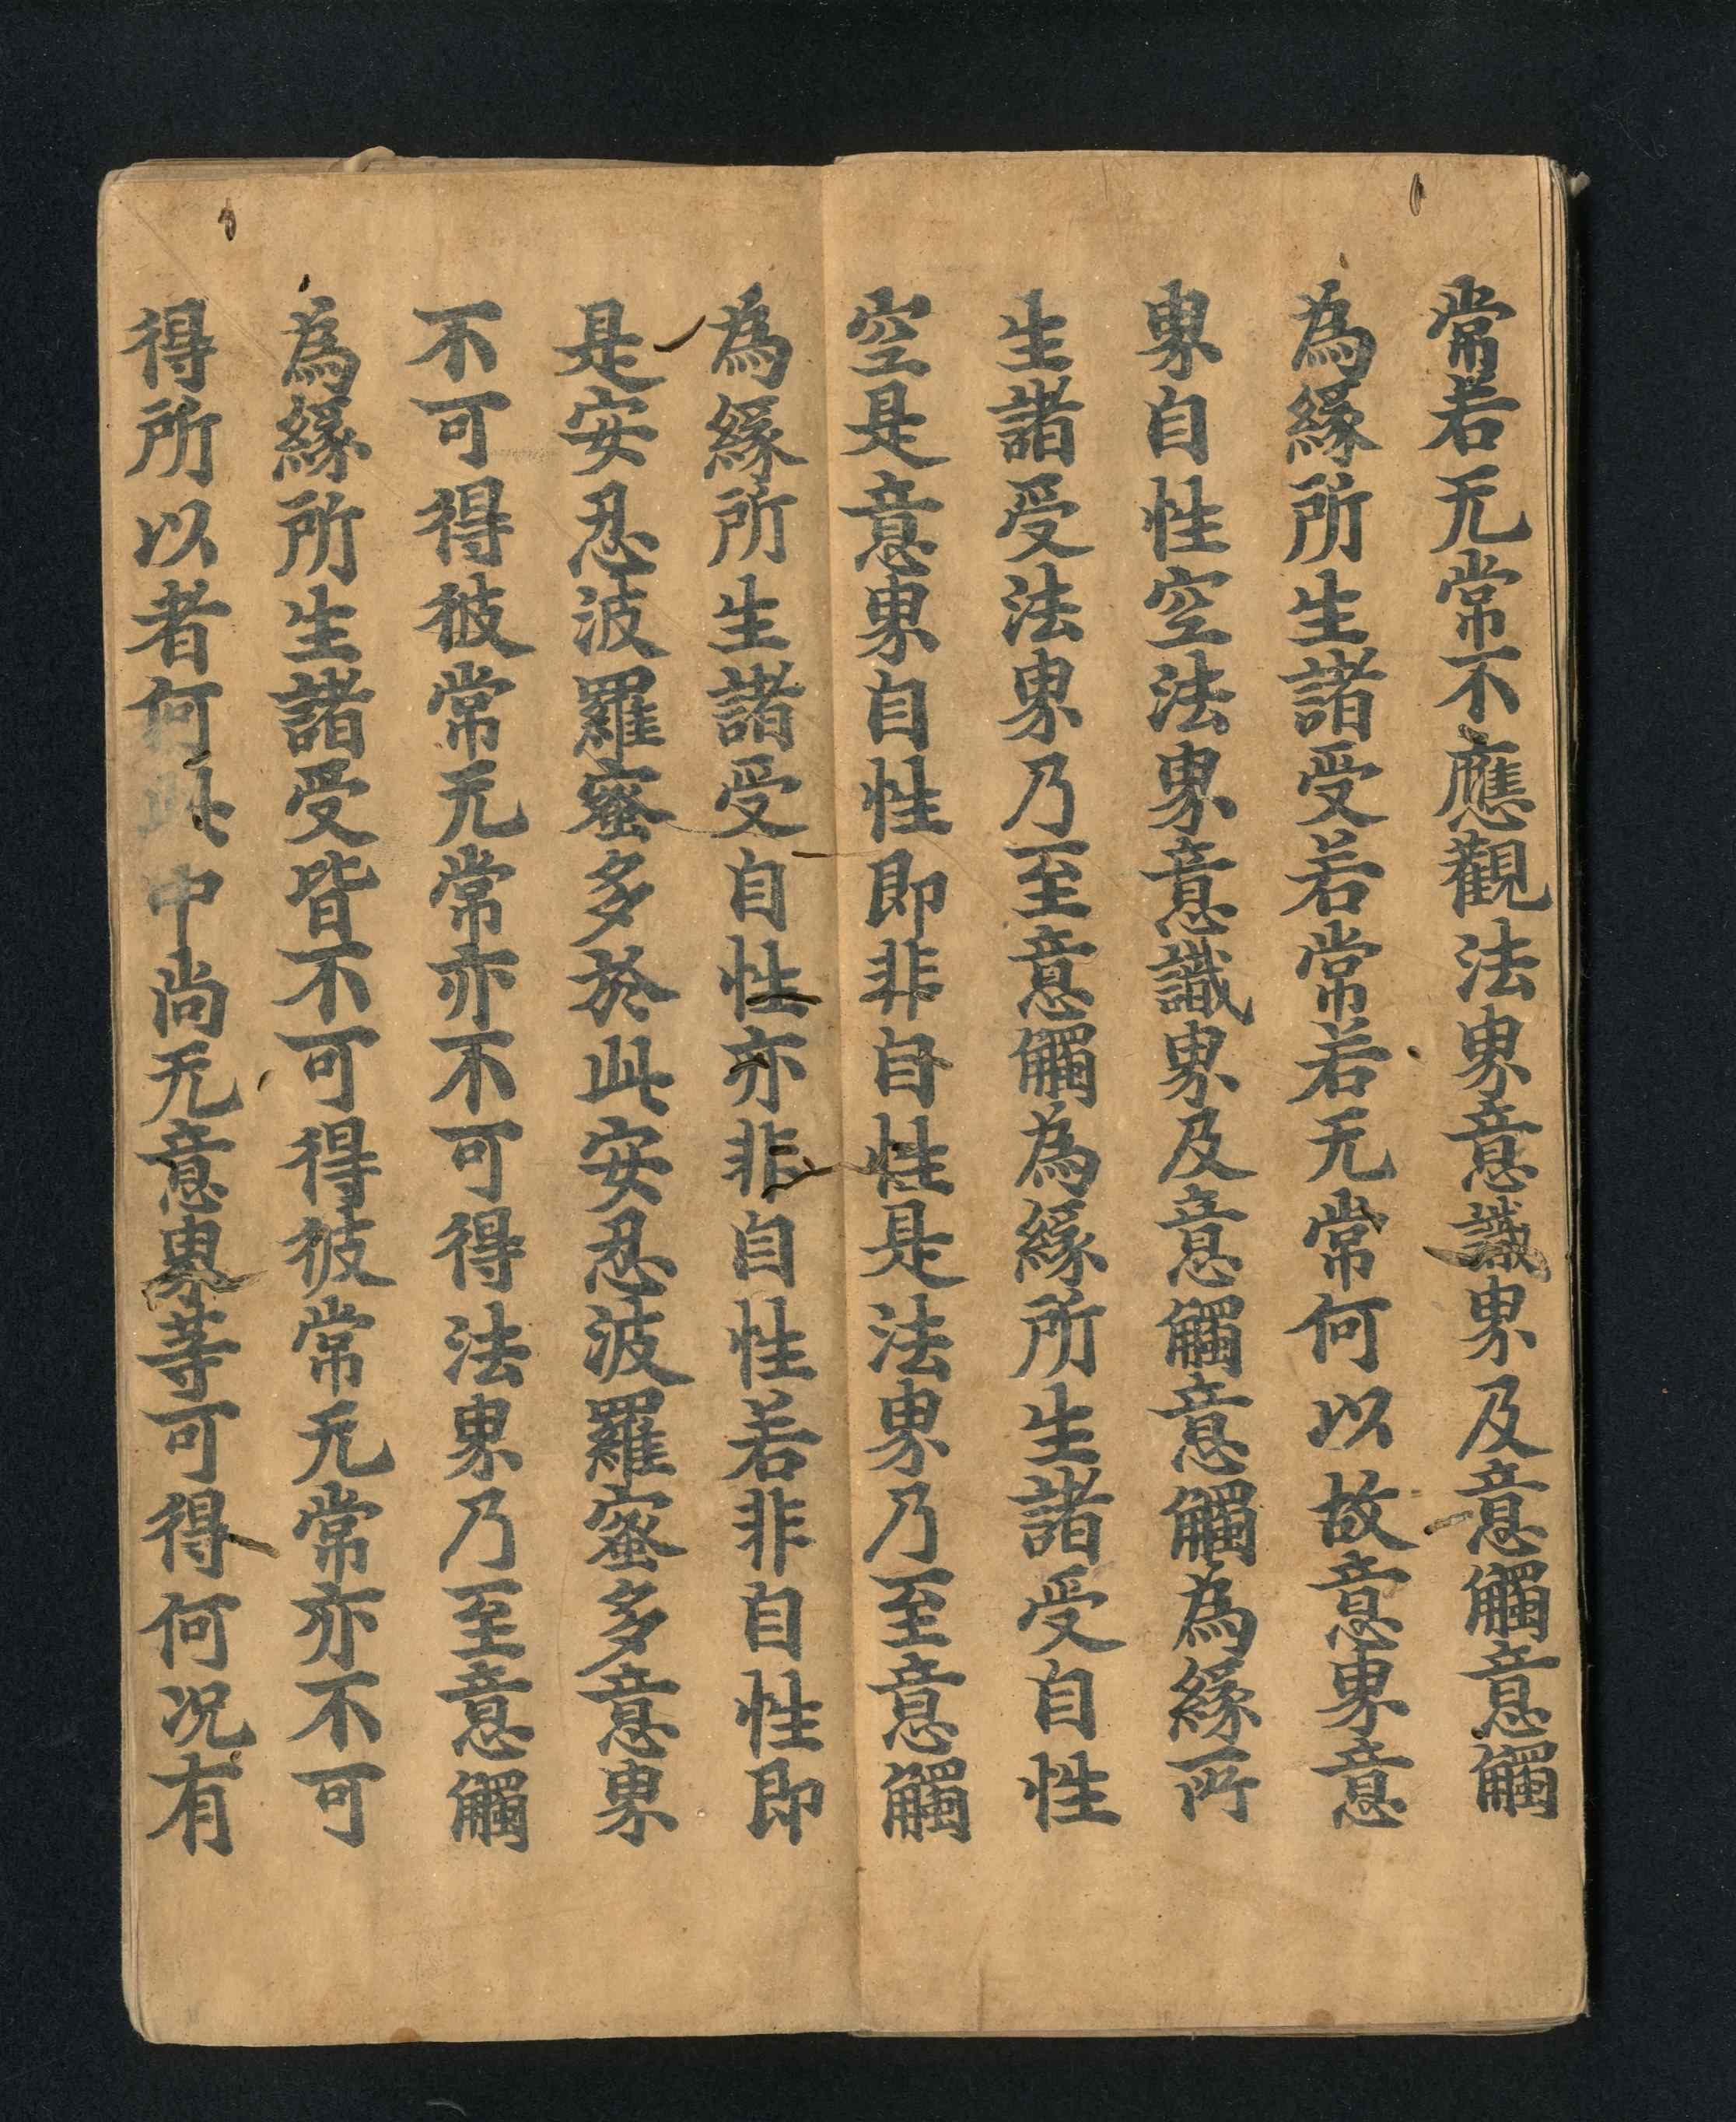 常若无常不應觀法界意識界及意觸意觸
為緣所生諸受若常若无常何以故意界意
界自性空法界意識界及意觸意觸為緣所
生諸受法界乃至意觸為緣所生諸受自性
空是意界自性即非自性是法界乃至意觸
為緣所生諸受自性亦非自性若非自性即
是安忍波羅蜜多於此安忍波羅蜜多意界
不可得彼常无常亦不可得法界乃至意觸
為緣所生諸受皆不可得彼常无常亦不可
得所以者何此中尚无意界等可得何况有